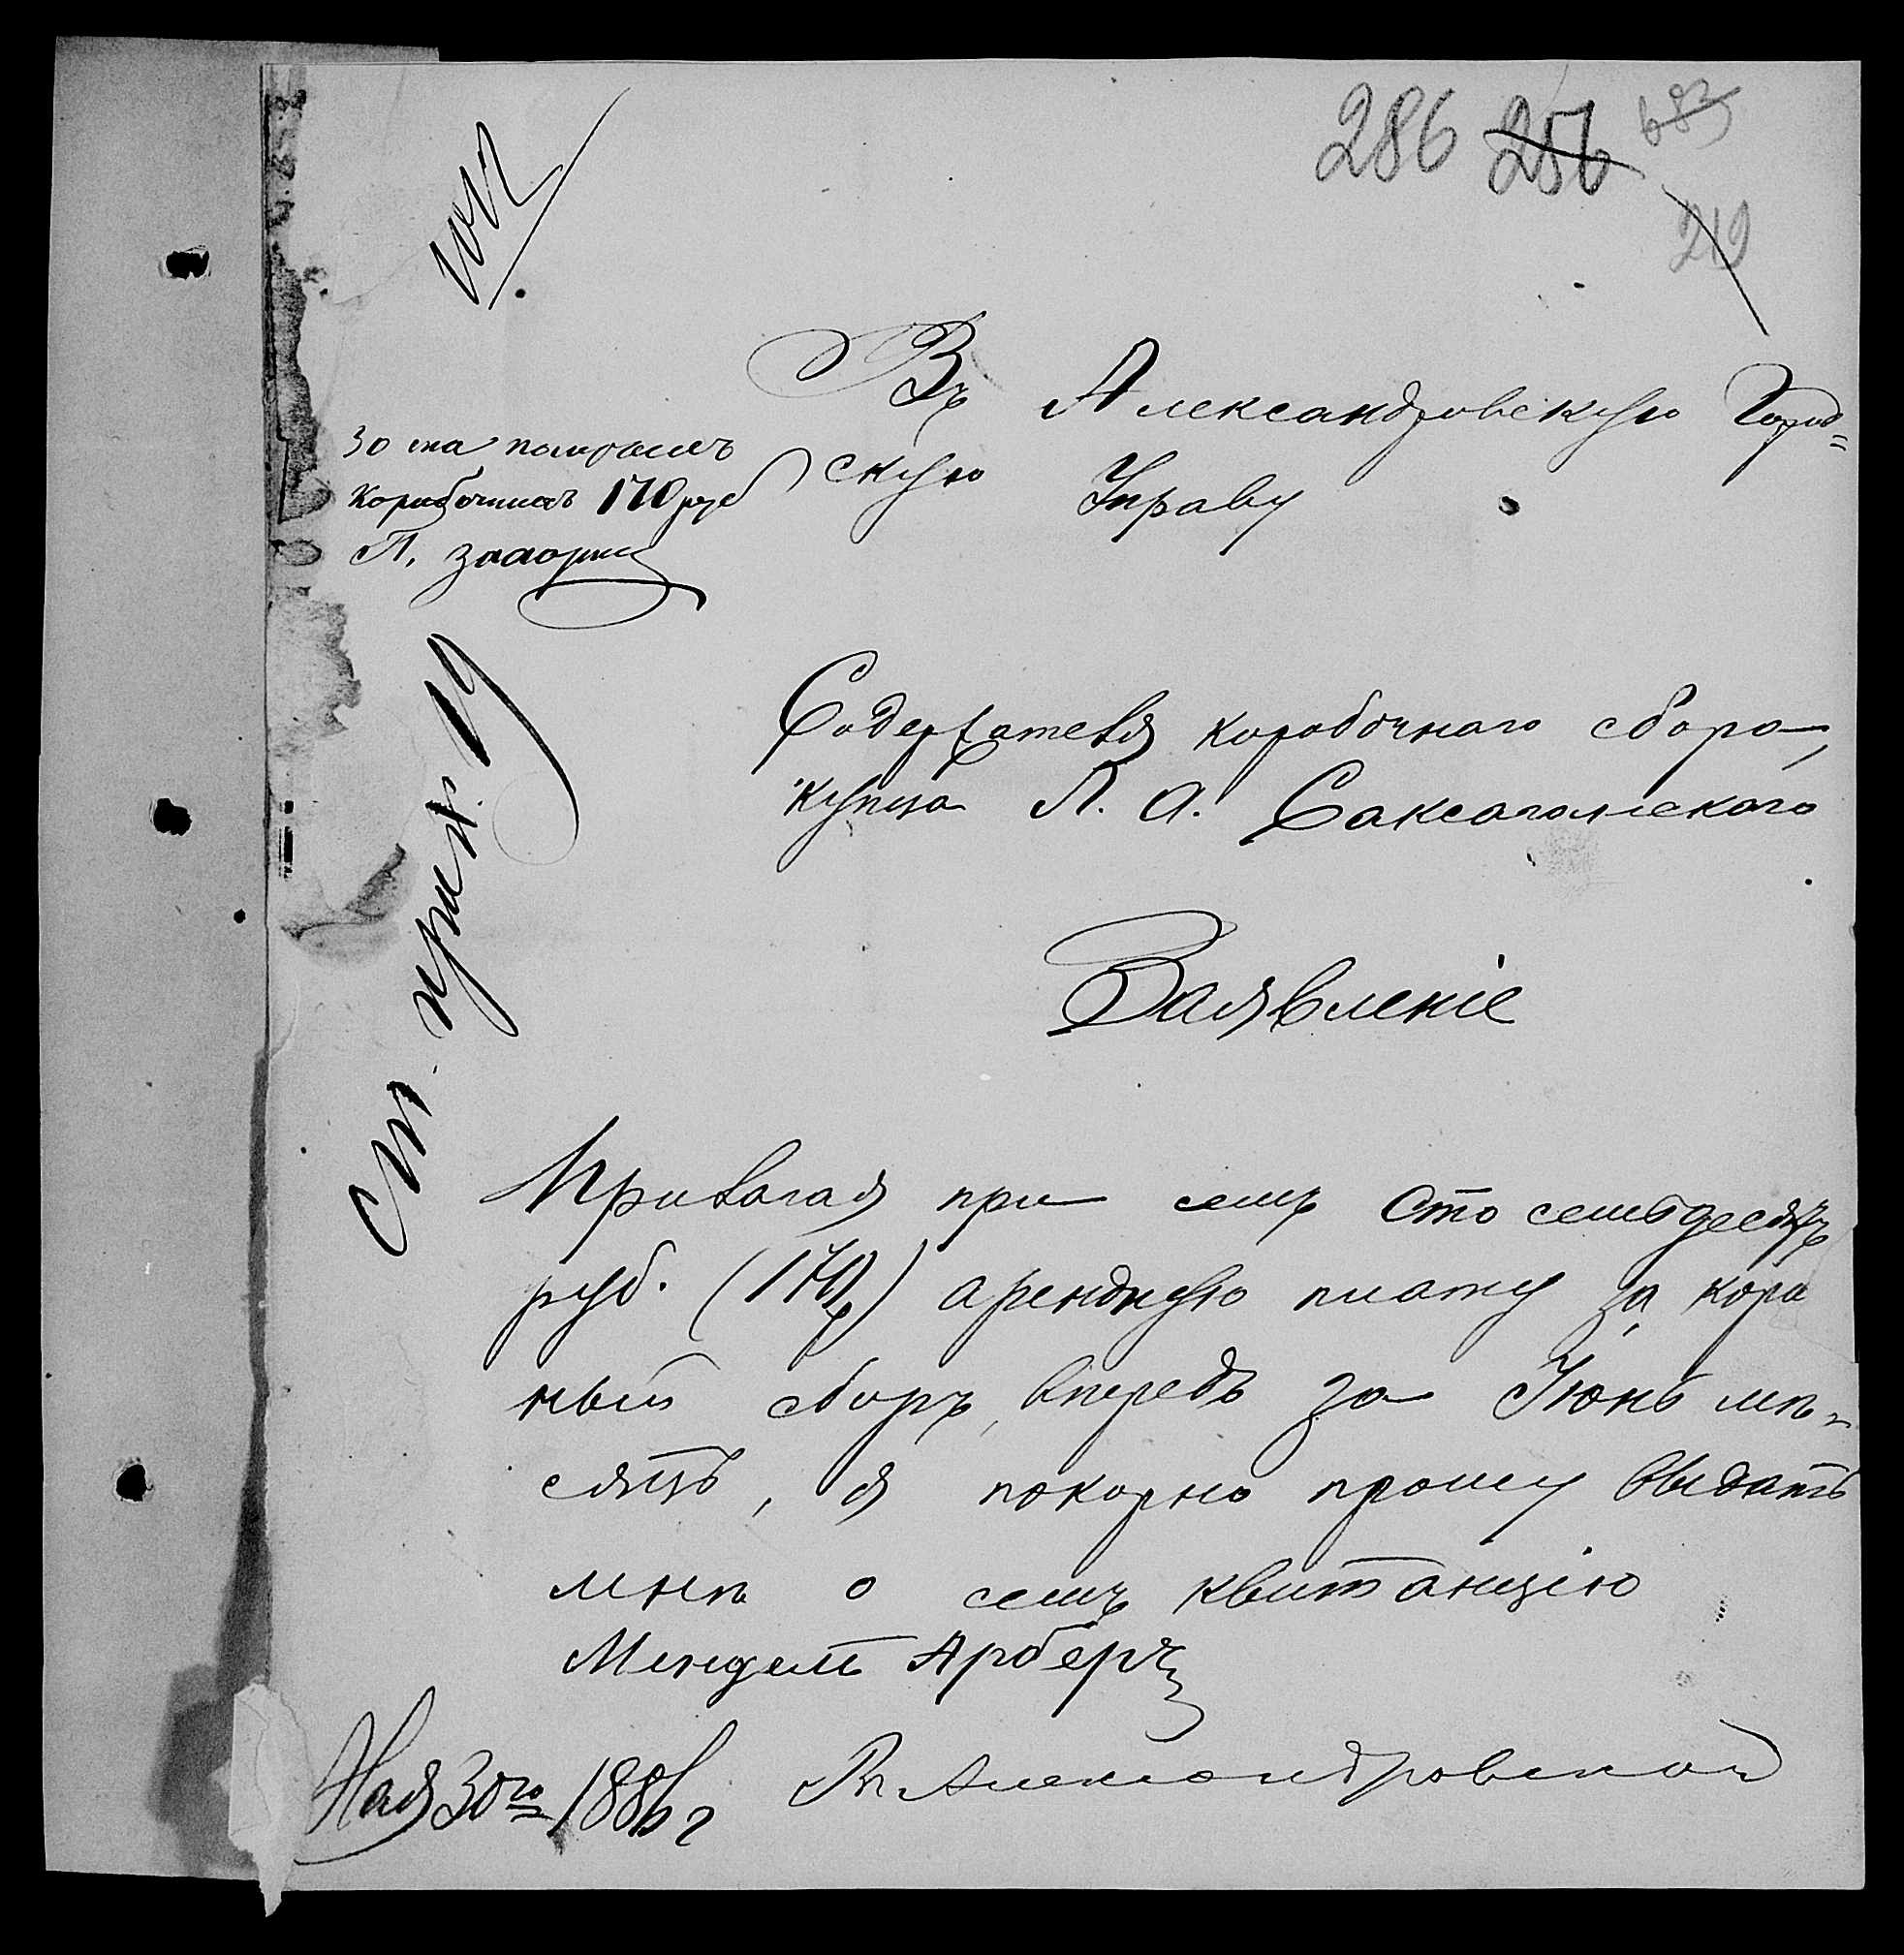 286 256 683
219
1012
Въ Александровскую Город=
скую Управу
30 мая
Коробочнаго 170 руб
П.
Содержателя коробочнаго сбора,
купца Л. А. Саксагонскаго
Заявленіе
Ст. прил. 19
Прилагая при семъ Сто семьдесятъ
руб. (170 р) арендную плату за коро
ный сборъ, впередъ за Іюнь мѣ-
сяцъ, я покорно прошу выдать
мнѣ о семъ квитанцію
Мендель Арберъ
Мая 30го 1886 г Александровской